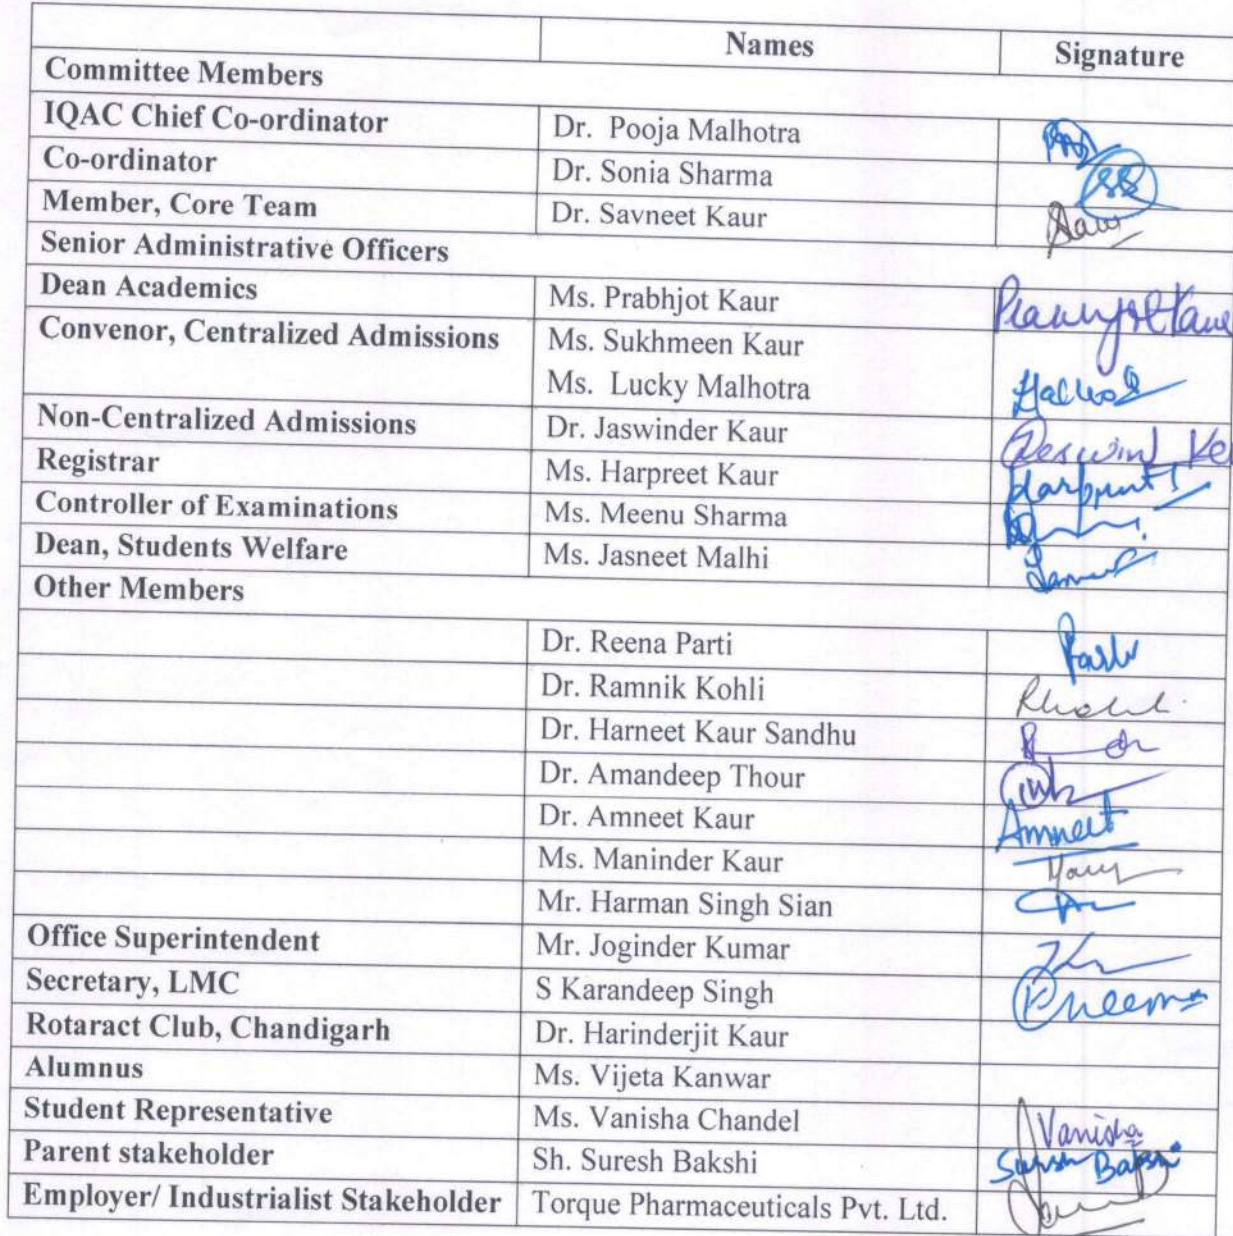 Names Signature
Committee Members
IQAC Chief Co-ordinator Dr. Pooja Malhotra
Co-ordinator Dr. Sonia Sharma
Member, Core Team Dr. Savneet Kaur
Senior Administrative Officers
Dean Academics Ms. Prabhjot Kaur
Convenor, Centralized Admissions Ms. Sukhmeen Kaur
Ms. Lucky Malhotra
Non-Centralized Admissions Dr. Jaswinder Kaur
Registrar Ms. Harpreet Kaur
Controller of Examinations Ms. Meenu Sharma
Dean, Students Welfare Ms. Jasneet Malhi
Other Members
Dr. Reena Parti
Dr. Ramnik Kohli
Dr. Harneet Kaur Sandhu
Dr. Amandeep Thour
Dr. Amneet Kaur Amneet
Ms. Maninder Kaur
Mr. Harman Singh Sian
Office Superintendent Mr. Joginder Kumar
Secretary, LMC S Karandeep Singh
Rotaract Club, Chandigarh Dr. Harinderjit Kaur
Alumnus Ms. Vijeta Kanwar
Student Representative Ms. Vanisha Chandel Vanisha
Parent stakeholder Sh. Suresh Bakshi
Employer/ Industrialist Stakeholder Torque Pharmaceuticals Pvt. Ltd.